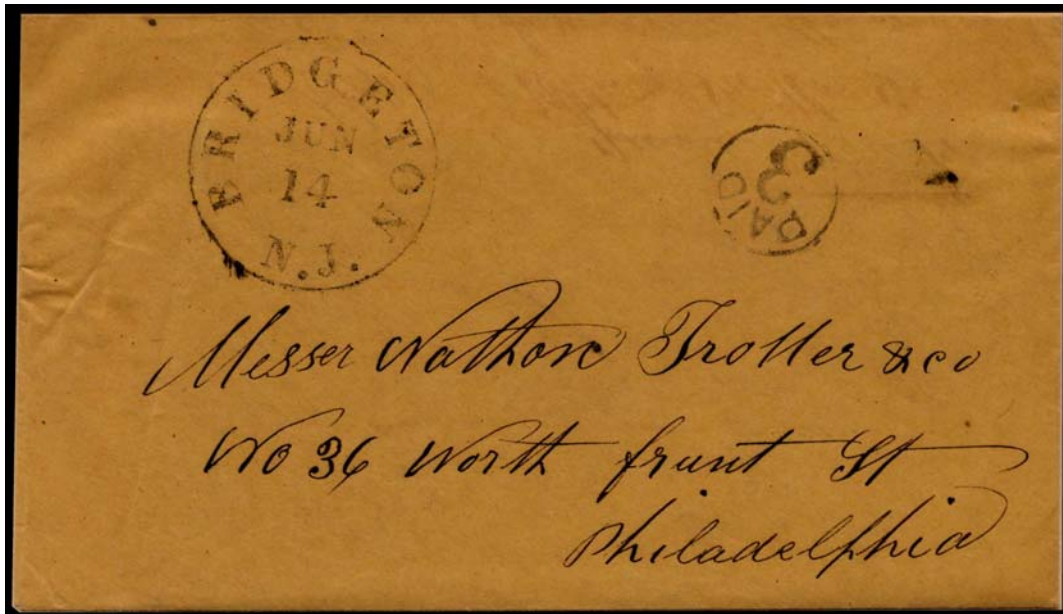 BRIDGETON
JUN
14
N.J.
PAID
3
Messer Nathan Trotter & co
No 36 North frunt St
Philadelphia